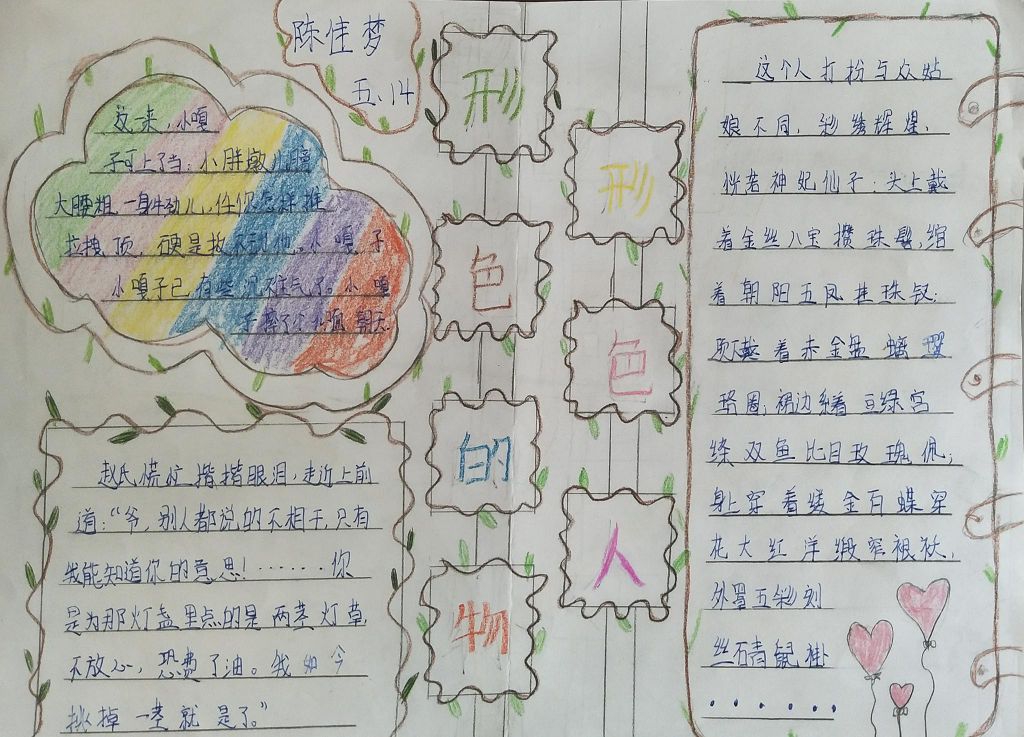 陈佳梦
五、14
形
色
的
物
形
色
人
这一来，小嘎
子可上了当：小胖墩儿膀
大腰粗，一身牛劲儿，任你怎样推
拉拽顶，硬是扳不到他。小嘎子
小嘎子已有些沉不住气了。小嘎
子摔了个仰面朝天
赵氏慌忙揩揩眼泪，走近上前
道：“爷，别人都说的不相干，只有
我能知道你的意思！······你
是为那灯盏里点的是两茎灯草，
不放心，恐费了油。我如今
挑掉一茎就是了。”
这个人打扮与众姑
娘不同，彩绣辉煌，
恍若神妃仙子：头上戴
着金丝八宝攒珠髻，绾
着朝阳五凤挂珠钗；
项 着赤金盘螭璎
珞圈；裙边系着豆绿宫
绦双鱼比目玫瑰佩；
身上穿着缕金百蝶穿
花大红洋缎窄裉袄，
外罩五彩刻
丝石青鼠褂
·······